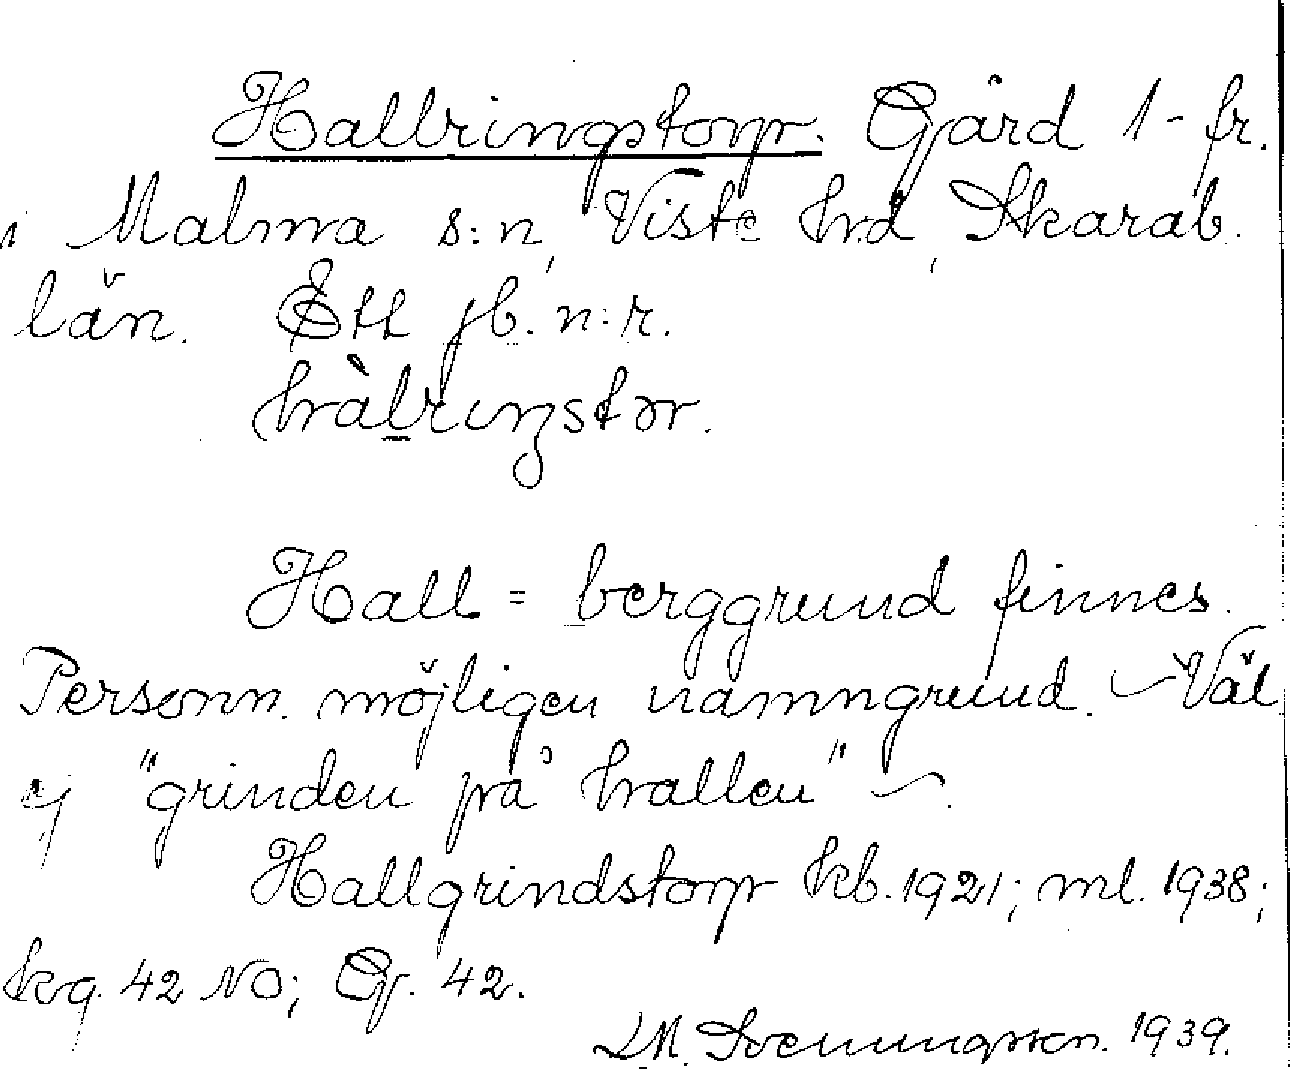 Hallringstorp. Gård 1 - fr.
i Malma s:n, Viste hrd, Skarab.
län. Ett jb. n:r.
hàlriŋstɔr.
Hall = berggrund finnes.
Personn. möjligen namngrund. – Väl
ej "grinden på hallen" –.
Hallgrindstorp kb. 1921; ml. 1938;
kg. 42 NO; Gj. 42.
LM. Svenungsson. 1939.